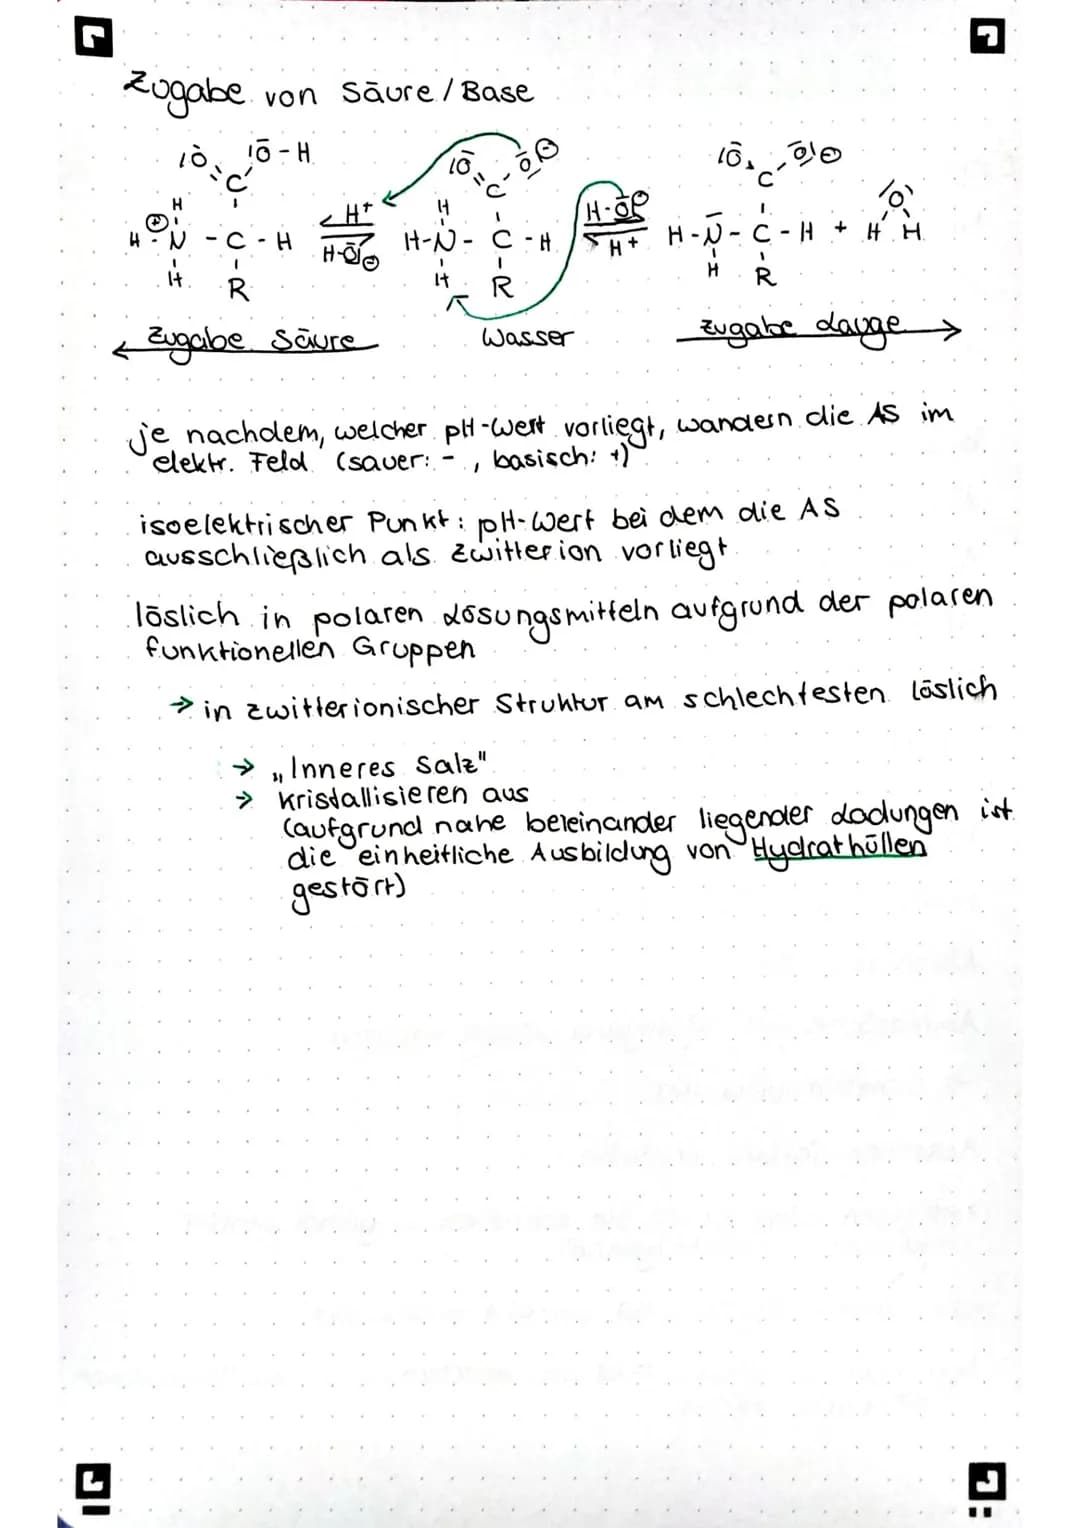 Zugabe von Säure / Base
|O O-H
C
H
H-N-C-H
H R
H+
H-O|⊖
|O O|⊖
C
H
H-N-C-H
H R
H-O|⊖
H+
|O O|⊖
C
H-N-C-H + H O H
H R
Zugabe Säure
Wasser
Zugabe Lauge
je nachdem, welcher pH-Wert vorliegt, wandern die AS im
elektr. Feld (sauer: - , basisch: +)
isoelektrischer Punkt: pH-Wert bei dem die AS
ausschließlich als Zwitterion vorliegt
löslich in polaren Lösungsmitteln aufgrund der polaren
funktionellen Gruppen
→ in zwitterionischer Struktur am schlechtesten löslich
→ „Inneres Salz"
→ kristallisieren aus
(aufgrund nahe beieinander liegender Ladungen ist
die einheitliche Ausbildung von Hydrathüllen
gestört)